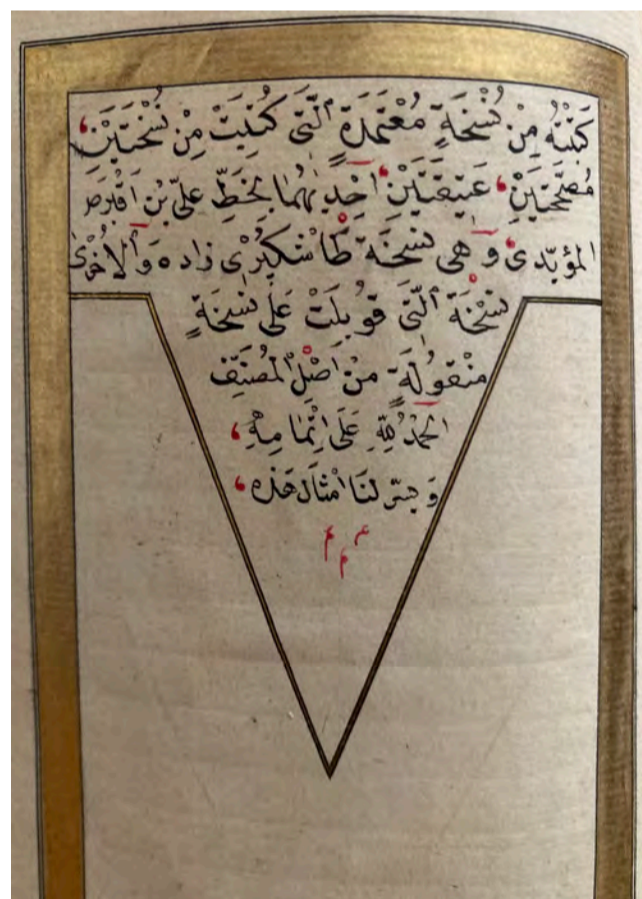 كَتَبْتُهُ مِنْ نُسْخَةٍ مُعْتَمَدَةٍ ٱلَّتِى كُتِبَتْ مِنْ نُسْخَتَيْنِ،
مُصَحَّحَتَيْنِ، عَتِيقَتَيْنِ، اِحْدٰيهُمَا بِخَطِّ عَلِىّ بْنِ
المُؤَيَّدِى، وَهِىَ نُسْخَة طَاشْكُپْرِى زاده وَٱلْاُخْرٰى
نُسْخَة ٱلَّتِى قُوبِلَتْ عَلَى نُسْخَةٍ
مَنْقُولَةٍ مِنْ اَصْلِ ٱلْمُصَنِّفِ
اَلْحَمْدُ لِلّٰهِ عَلَى اِتْمَامِهِ،
وَيَسَّرَ لَنَا اَمْثَالَ هَذِهِ،
م م م